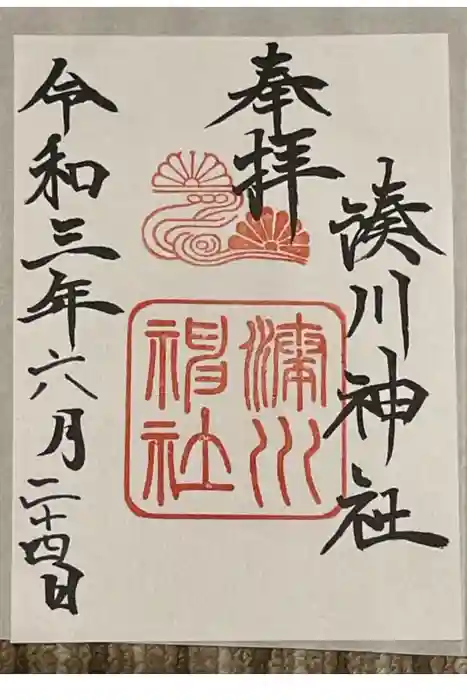 奉拝
湊川神社
湊川神社
令和三年六月二十四日